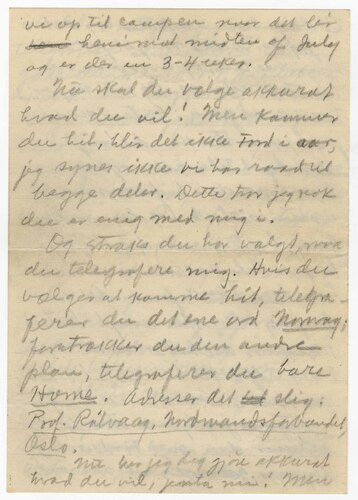 vi op til campen naar det lir
henimod midten af July
og er der en 3-4 uker.
Nu skal du vælge akkurat
hvad du vil! Men kommer
du hit, blir det ikke Ford i aar,
jeg synes ikke vi har raad til
begge deler. Dette tror jeg nok
du er enig med mig i.
Og straks du har valgt, maa
du telegrafere mig. Hvis du
vælger at komme hit, telegra-
ferer du det ene ord Norway;
foretrækker du den andre
plan, telegraferer du bare
Home. Adresser det slig:
Prof. Rölvaag, Nordmandsforbundet,
Oslo.
Nu har jeg deg gjøre akkurat
hvad du vil, jenta mi! Men